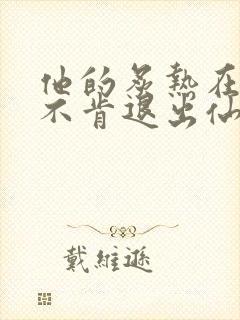 他的炙熱在
不肯退出仙
戴維遜